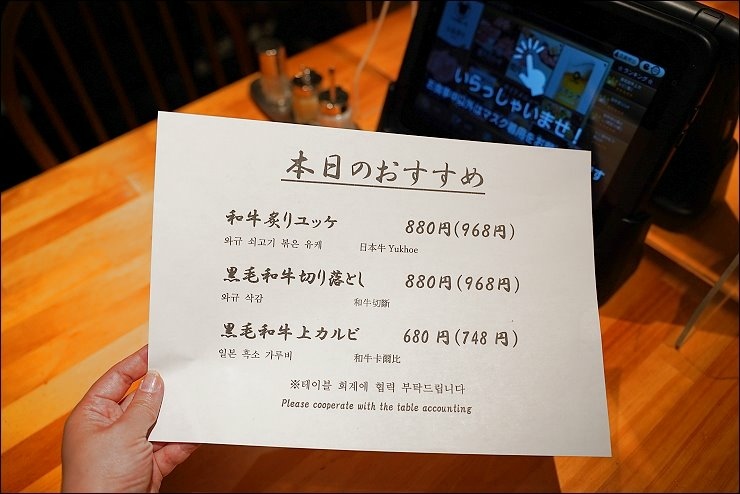 いらっしゃいませ!
本日のおすすめ
和牛炙りユッケ 880円(968円)
와규 쇠고기 볶은 유캐 日本牛Yukhoe
黒毛和牛切り落とし 880円(968円)
와규 삭감 和牛切斷
黒毛和牛上カルビ 680円(748円)
일본 흑소 가루비 和牛卡爾比
※테이블 회계에 협력 부탁드립니다
Please cooperate with the table accounting